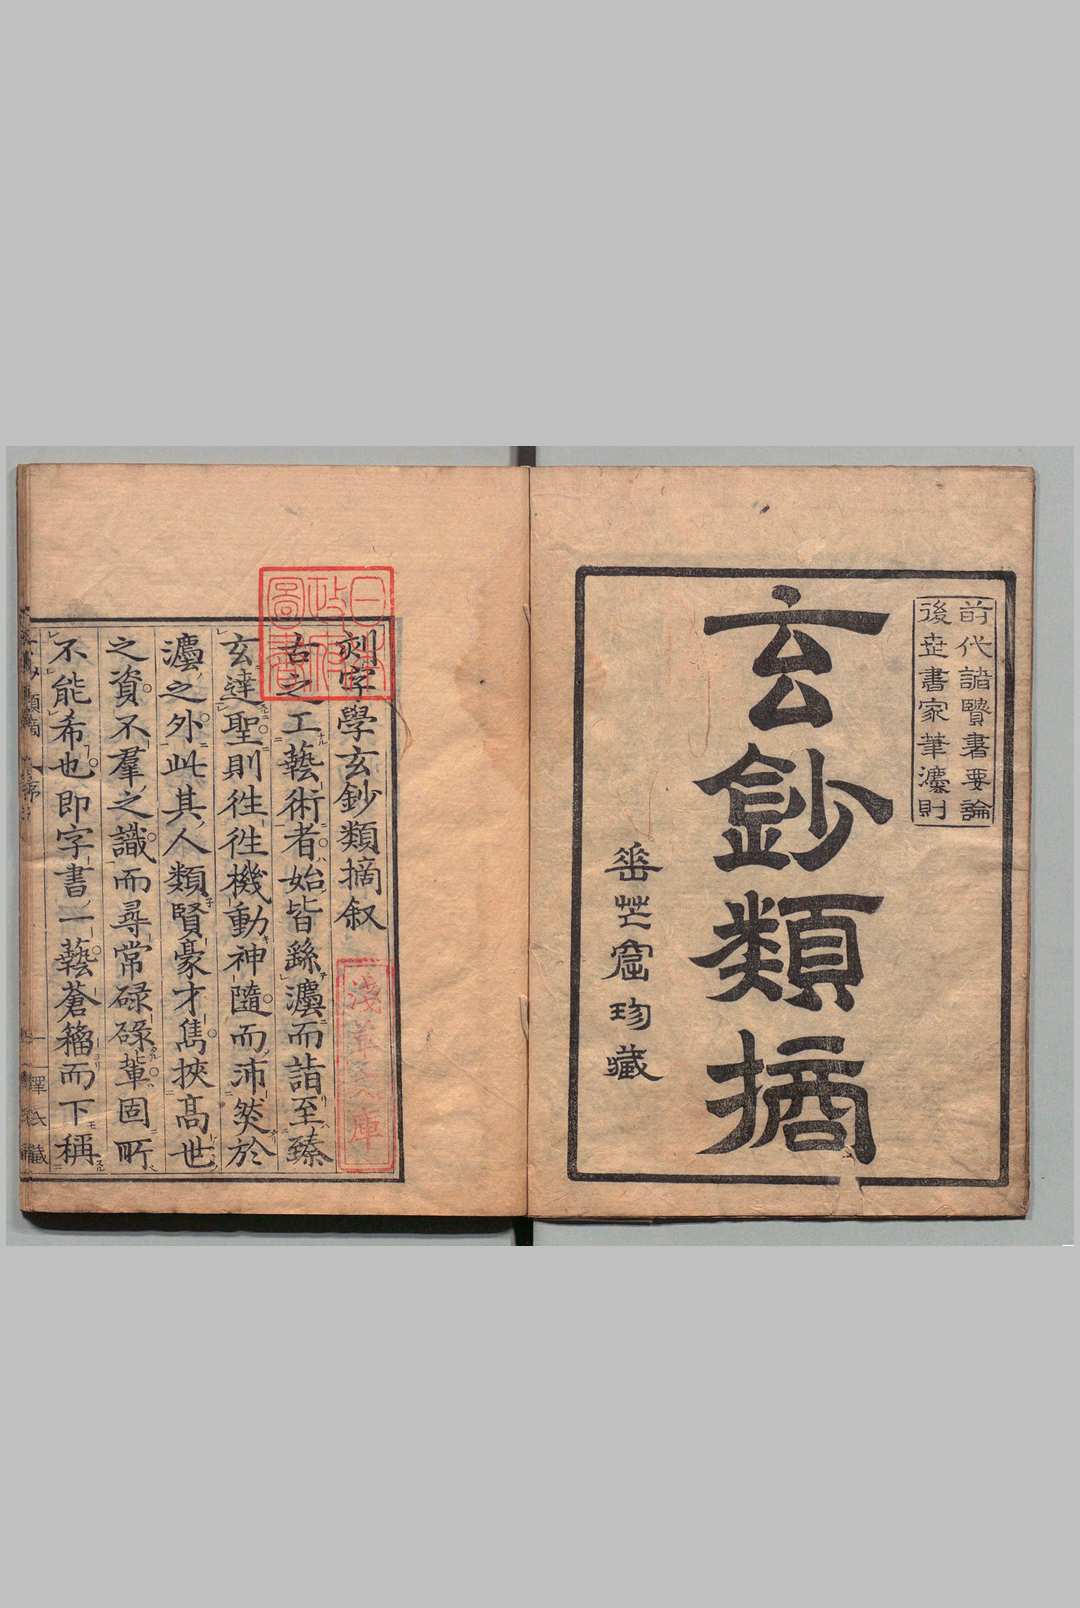 前代諸賢書要論
後世書家筆灋則
玄鈔類摘
芒窟珍藏
日本政府圖書
刻字學玄鈔類摘叙
淺草文庫
古之工藝術者始皆繇灋而詣至臻
玄達聖則徃徃機動神隨而沛然於
灋之外此其人類賢豪才雋挾高世
之資不羣之識而尋常碌碌輩固所
不能希也即字書一藝蒼籀而下稱
類摘 序 一